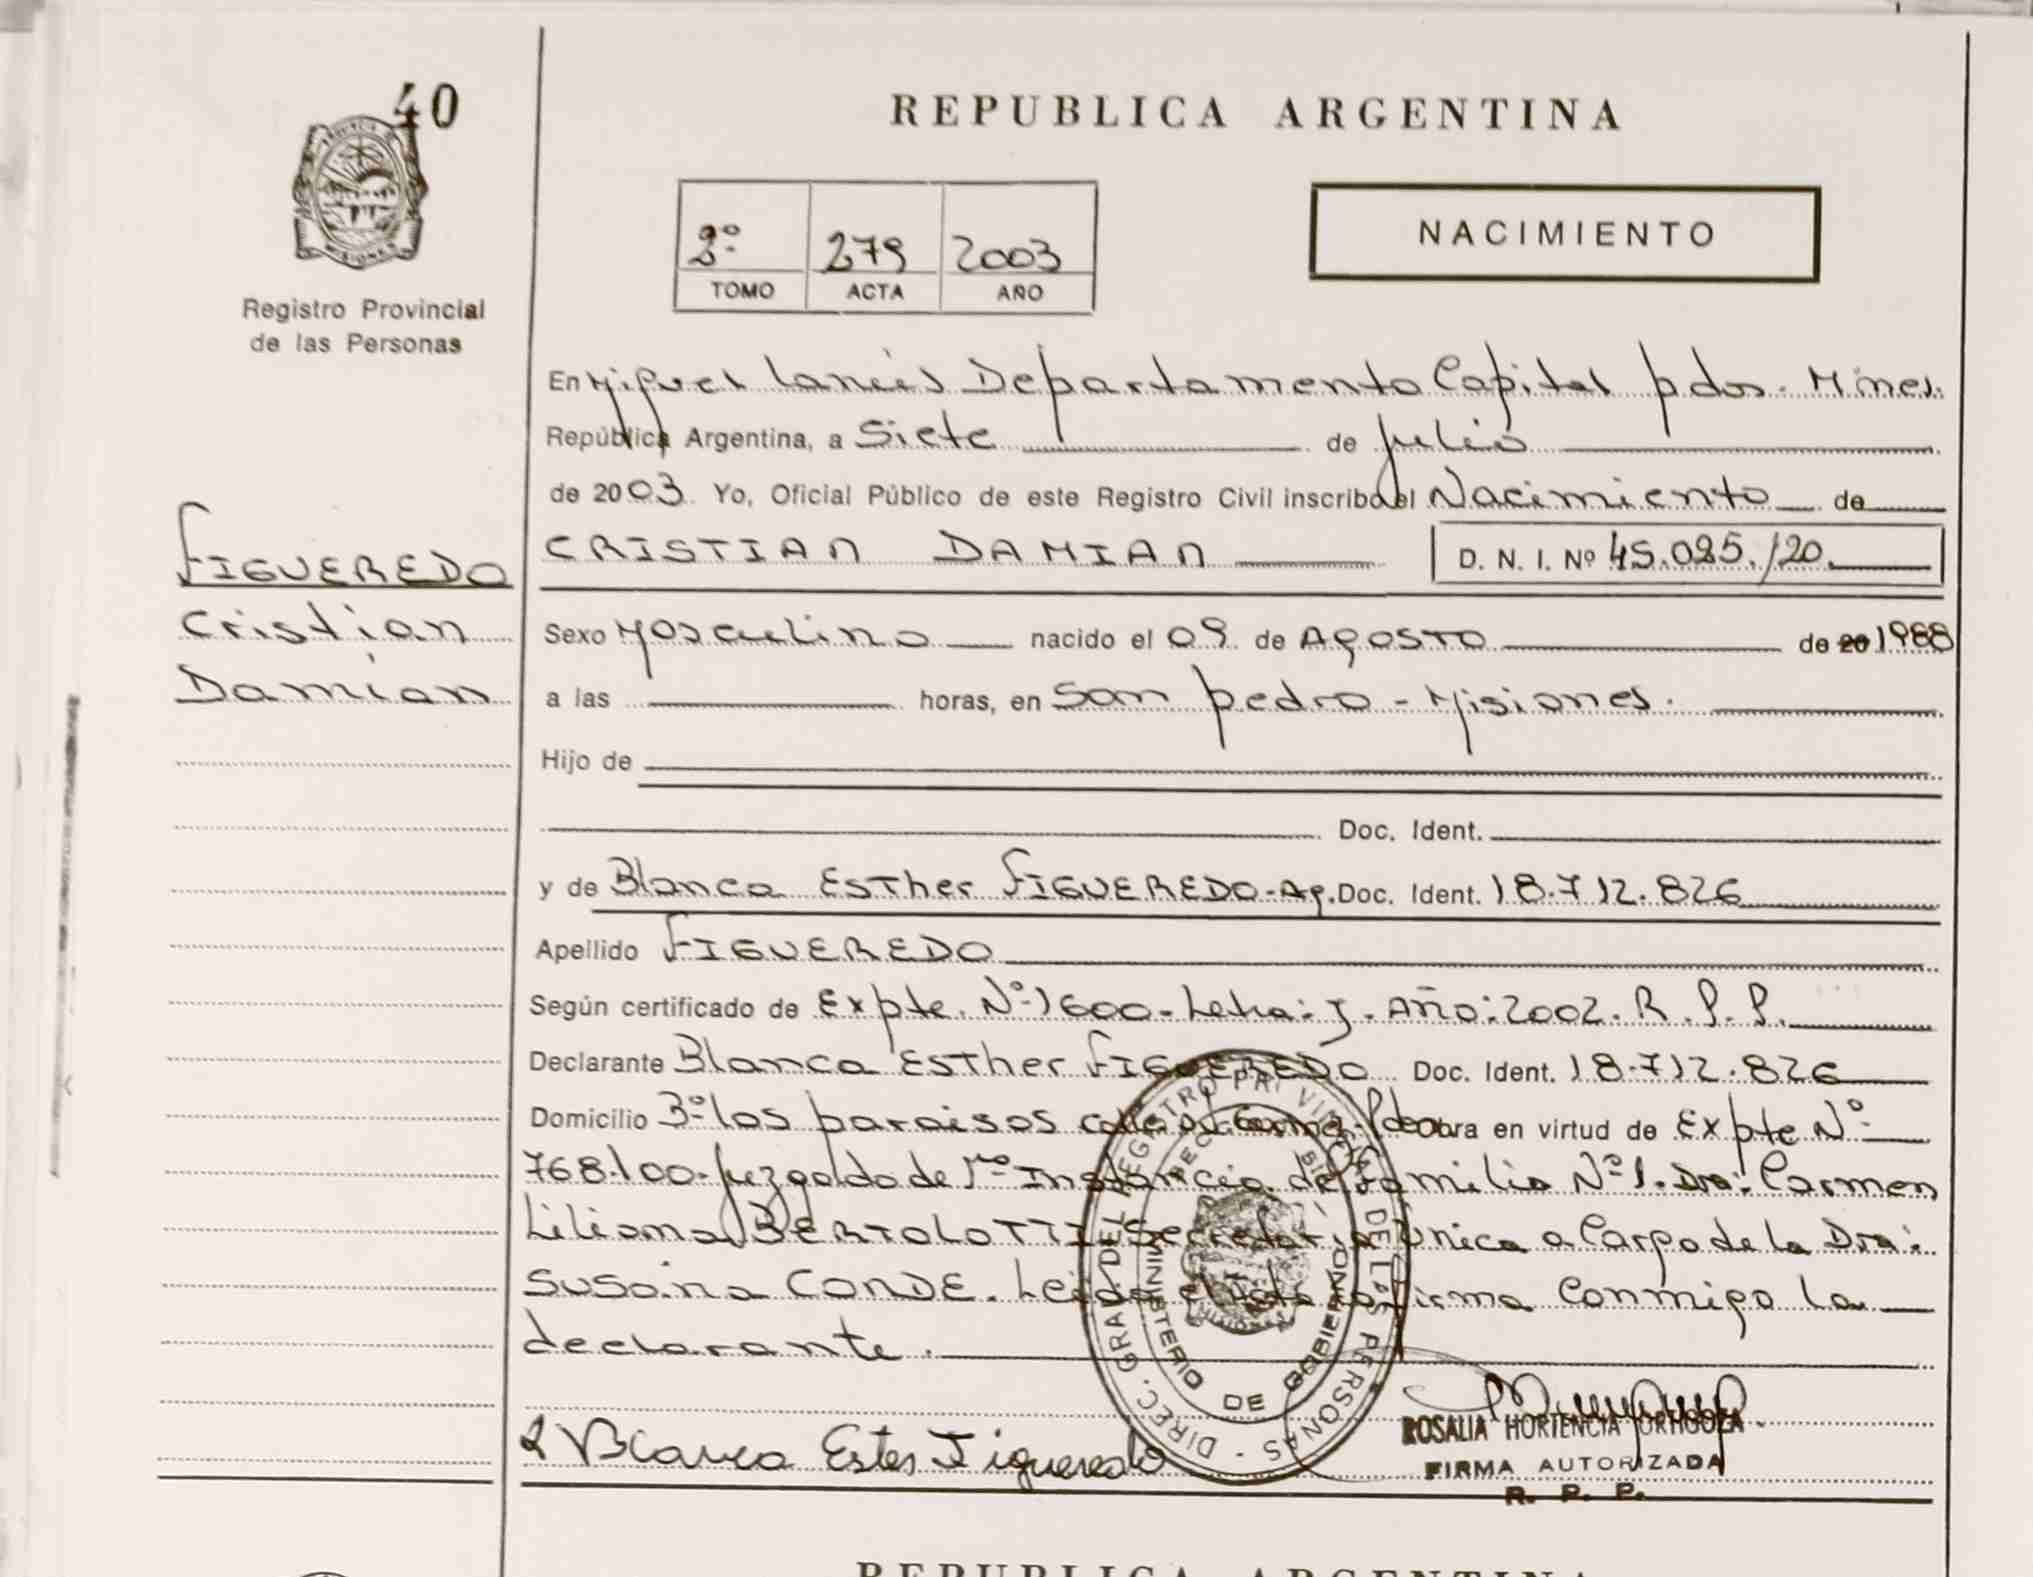 40
REPUBLICA ARGENTINA
2º 279 2003
TOMO ACTA AÑO
NACIMIENTO
Registro Provincial
de las Personas
En Miguel Lanús Departamento Capital pdas. Mnes.
República Argentina, a Siete de julio
de 2003. Yo, Oficial Público de este Registro Civil inscribo el Nacimiento de
CRISTIAN DAMIAN D. N. I. Nº 45.025.120
FIGUEREDO
Cristian
Damian
Sexo Masculino nacido el 09 de AGOSTO de 20 1988
a las horas, en San Pedro - Misiones.
Hijo de
Doc. Ident.
y de Blanca Esther FIGUEREDO - Ag. Doc. Ident. 18.712.826
Apellido FIGUEREDO
Según certificado de Expte. Nº 1600 - Letra: J - Año: 2002. R. P. P.
Declarante Blanca Esther FIGUEREDO Doc. Ident. 18.712.826
Domicilio Bº los paraisos obra en virtud de Expte Nº
768.100. juzgado de 1ra Instancia de familia Nº 1. Dra: Carmen
Liliana BERTOLOTTI Secretaria Unica a Cargo de la Dra:
Susana CONDE. Leida el Acta la firma Conmigo la
declarante.
Blanca Ester Figueredo
DIREC. GRAL. DEL REGISTRO PROVINCIAL DE LAS PERSONAS
MINISTERIO DE GOBIERNO
ROSALIA HORTENCIA
FIRMA AUTORIZADA
R. P. P.
REPUBLICA ARGENTINA